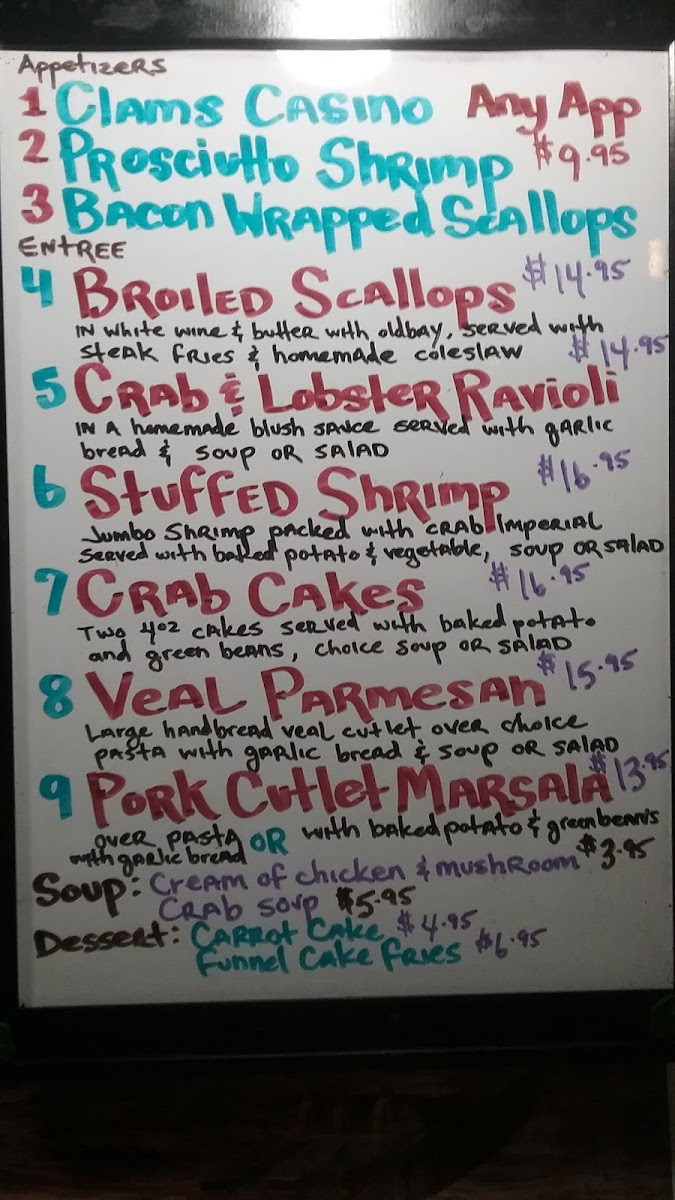 Appetizers
1 Clams Casino Any App
2 Prosciutto Shrimp $9.95
3 Bacon Wrapped Scallops
Entree
4 Broiled Scallops $14.95
in white wine & butter with oldbay, served with
steak fries & homemade coleslaw
5 Crab & Lobster Ravioli $14.95
in a homemade blush sauce served with garlic
bread & soup or salad
6 Stuffed Shrimp $16.95
Jumbo Shrimp packed with crab imperial
served with baked potato & vegetable, soup or salad
7 Crab Cakes $16.95
Two 4oz cakes served with baked potato
and green beans, choice soup or salad
8 Veal Parmesan $15.95
Large handbread veal cutlet over choice
pasta with garlic bread & soup or salad
9 Pork Cutlet Marsala $13.95
over pasta OR with baked potato & greenbeans
with garlic bread
Soup: Cream of chicken & mushroom $3.95
Crab soup $5.95
Dessert: Carrot Cake $4.95
Funnel Cake Fries $6.95